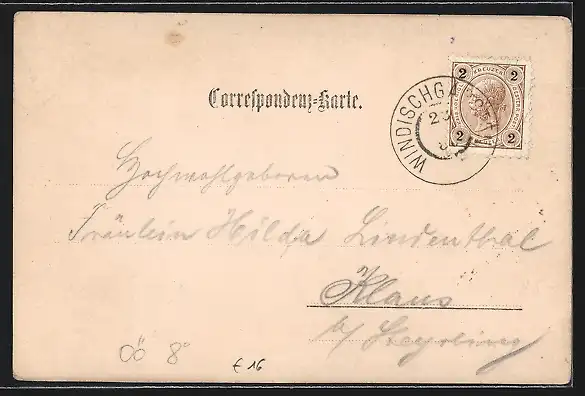 2 KREUZER 2
2 2
WINDISCHGA
Correspondenz=Karte.
Hochwohlgeboren
Fräulein Hilda Lindenthal
Klaus
b/ Steyrling
OÖ 8°
€ 16